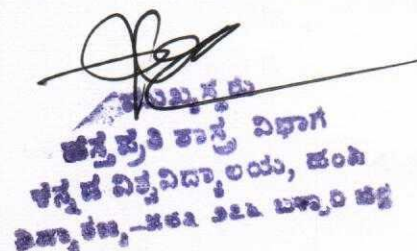 ಮುಖ್ಯಸ್ಥರು
ಹಸ್ತಪ್ರತಿ ಶಾಸ್ತ್ರ ವಿಭಾಗ
ಕನ್ನಡ ವಿಶ್ವವಿದ್ಯಾಲಯ, ಹಂಪಿ
ವಿದ್ಯಾರಣ್ಯ-೫೮೩ ೨೭೬ ಬಳ್ಳಾರಿ ಜಿಲ್ಲೆ